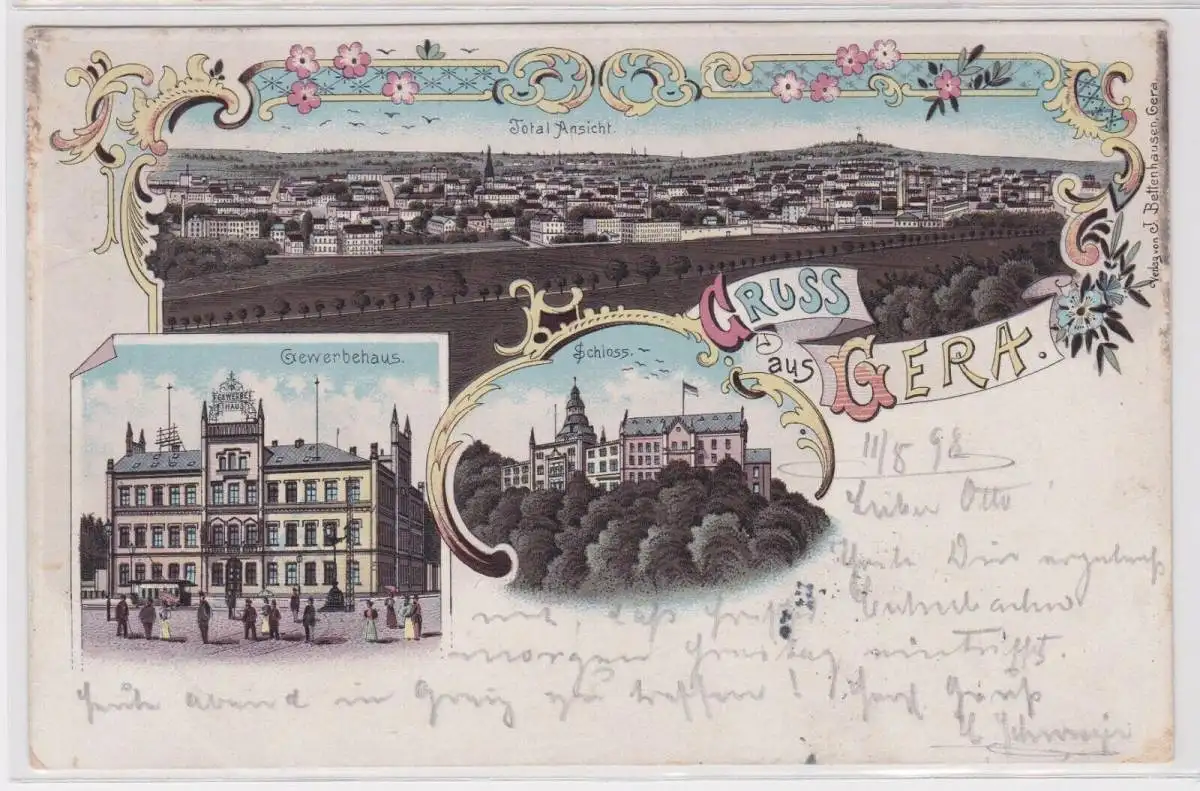 Total Ansicht.
Verlag von J. Bettenhausen, Gera
GRUSS
aus
GERA.
Gewerbehaus.
GEWERBE
HAUS
Schloss.
11/8 98
Lieber Otto
Theile Dir ergebenst
mit, daß
morgen eintrifft.
Heute abend in Greiz zu treffen! Gruß